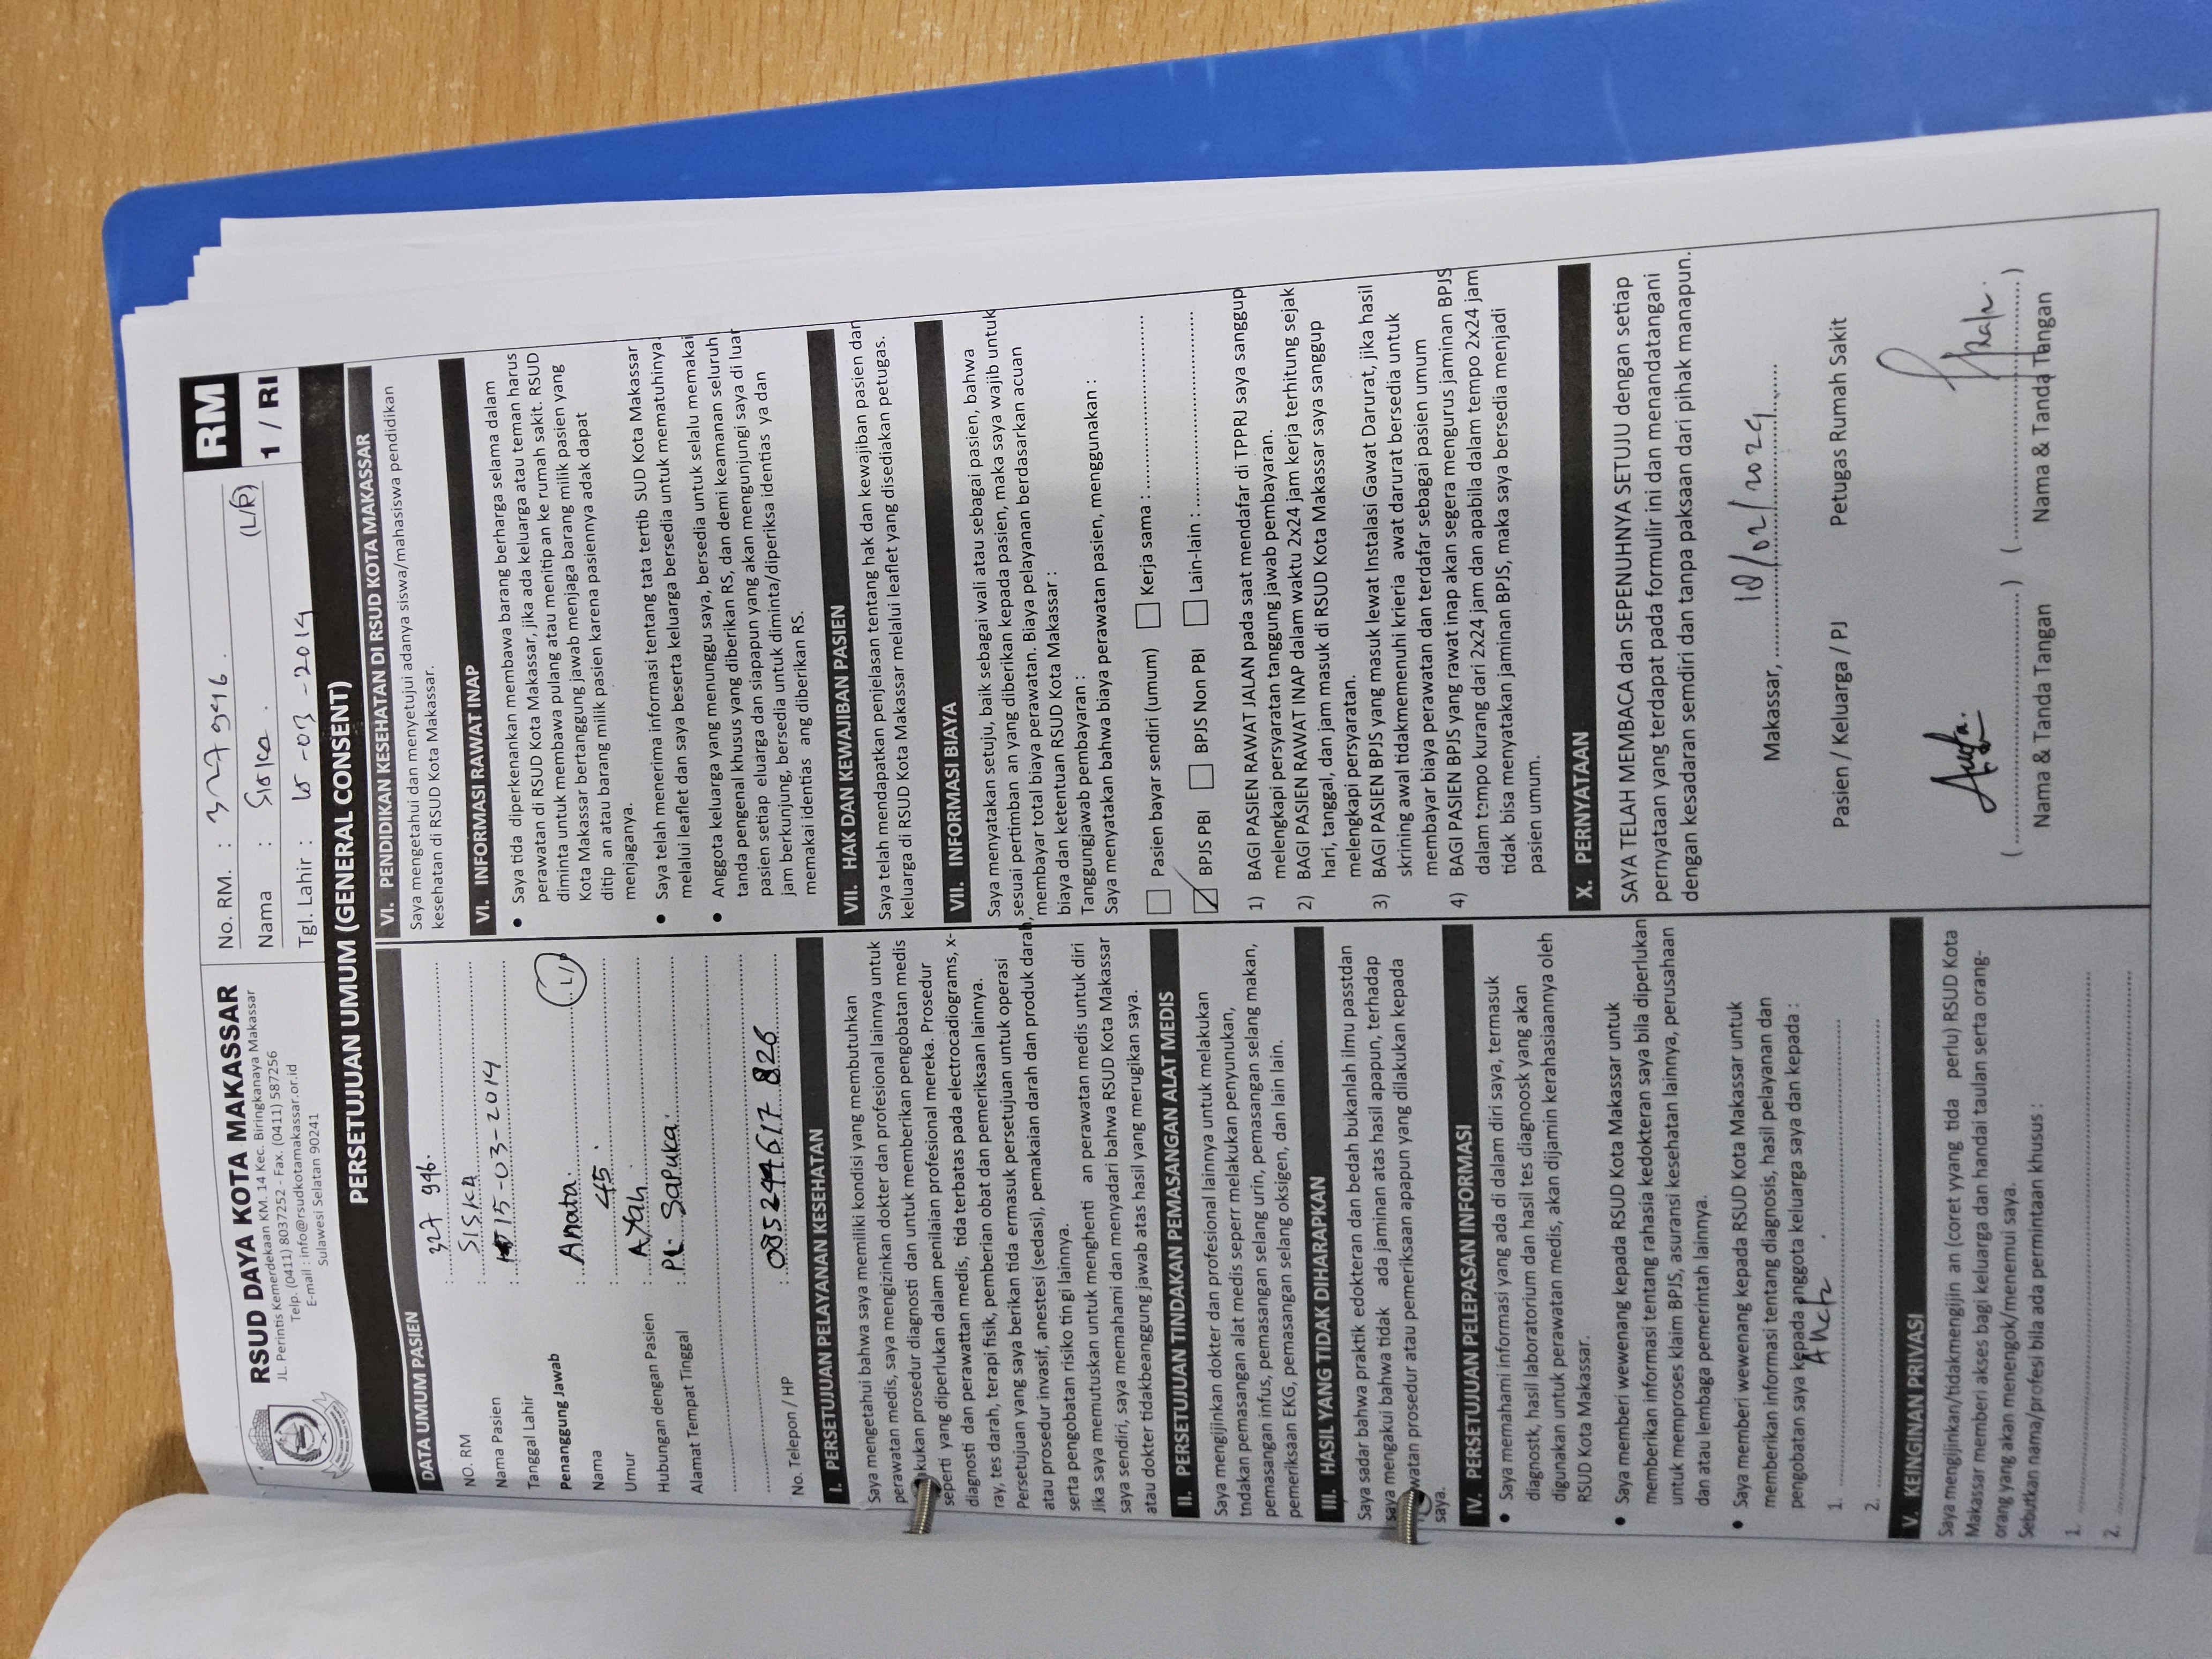 RSUD DAYA KOTA MAKASSAR
JL. Perintis Kemerdekaan KM. 14 Kec. Biringkanaya Makassar
Telp. (0411) 8037252 - Fax. (0411) 587256
E-mail : info@rsudkotamakassar.or.id
Sulawesi Selatan 90241
No. RM. : 327996.
Nama : Siska . (L/P)
Tgl. Lahir : 15 -03 -2014
RM
1 / RI
PERSETUJUAN UMUM (GENERAL CONSENT)
DATA UMUM PASIEN
NO. RM : 327 996.
Nama Pasien : SISKA
Tanggal Lahir : 15-03-2014
Penanggung Jawab
Nama : Anata. L/P
Umur : 45
Hubungan dengan Pasien : AYah
Alamat Tempat Tinggal : PL. SaPuka.
No. Telepon / HP : 085244617 826
I. PERSETUJUAN PELAYANAN KESEHATAN
Saya mengetahui bahwa saya memiliki kondisi yang membutuhkan
perawatan medis, saya mengizinkan dokter dan profesional lainnya untuk
akukan prosedur diagnosti dan untuk memberikan pengobatan medis
seperti yang diperlukan dalam penilaian profesional mereka. Prosedur
diagnosti dan perawattan medis, tida terbatas pada electrocadiograms, x-
ray, tes darah, terapi fisik, pemberian obat dan pemeriksaan lainnya.
Persetujuan yang saya berikan tida ermasuk persetujuan untuk operasi
atau prosedur invasif, anestesi (sedasi), pemakaian darah dan produk darah,
serta pengobatan risiko tin gi lainnya.
Jika saya memutuskan untuk menghenti an perawatan medis untuk diri
saya sendiri, saya memahami dan menyadari bahwa RSUD Kota Makassar
atau dokter tidakbeanggung jawab atas hasil yang merugikan saya.
II. PERSETUJUAN TINDAKAN PEMASANGAN ALAT MEDIS
Saya mengijinkan dokter dan profesional lainnya untuk melakukan
tndakan pemasangan alat medis seperr melakukan penyunukan,
pemasangan infus, pemasangan selang urin, pemasangan selang makan,
pemeriksaan EKG, pemasangan selang oksigen, dan lain lain.
III. HASIL YANG TIDAK DIHARAPKAN
Saya sadar bahwa praktik edokteran dan bedah bukanlah ilmu passtdan
saya mengakui bahwa tidak ada jaminan atas hasil apapun, terhadap
watan prosedur atau pemeriksaan apapun yang dilakukan kepada
saya.
IV. PERSETUJUAN PELEPASAN INFORMASI
• Saya memahami informasi yang ada di dalam diri saya, termasuk
diagnostk, hasil laboratorium dan hasil tes diagnoosk yang akan
digunakan untuk perawatan medis, akan dijamin kerahasiaannya oleh
RSUD Kota Makassar.
• Saya memberi wewenang kepada RSUD Kota Makassar untuk
memberikan informasi tentang rahasia kedokteran saya bila diperlukan
untuk memproses klaim BPJS, asuransi kesehatan lainnya, perusahaan
dan atau lembaga pemerintah lainnya.
• Saya memberi wewenang kepada RSUD Kota Makassar untuk
memberikan informasi tentang diagnosis, hasil pelayanan dan
pengobatan saya kepada anggota keluarga saya dan kepada :
1.
2.
V. KEINGINAN PRIVASI
Saya mengijinkan/tidakmengijin an (coret yyang tida perlu) RSUD Kota
Makassar memberi akses bagi keluarga dan handai taulan serta orang-
orang yang akan menengok/menemui saya.
Sebutkan nama/profesi bila ada permintaan khusus :
1.
2.
VI. PENDIDIKAN KESEHATAN DI RSUD KOTA MAKASSAR
Saya mengetahui dan menyetujui adanya siswa/mahasiswa pendidikan
kesehatan di RSUD Kota Makassar.
VI. INFORMASI RAWAT INAP
• Saya tida diperkenankan membawa barang berharga selama dalam
perawatan di RSUD Kota Makassar, jika ada keluarga atau teman harus
diminta untuk membawa pulang atau menitip an ke rumah sakit. RSUD
Kota Makassar bertanggung jawab menjaga barang milik pasien yang
ditip an atau barang milik pasien karena pasiennya adak dapat
menjaganya.
• Saya telah menerima informasi tentang tata tertib SUD Kota Makassar
melalui leaflet dan saya beserta keluarga bersedia untuk mematuhinya.
• Anggota keluarga yang menunggu saya, bersedia untuk selalu memakai
tanda pengenal khusus yang diberikan RS, dan demi keamanan seluruh
pasien setiap eluarga dan siapapun yang akan mengunjungi saya di luar
jam berkunjung, bersedia untuk diminta/diperiksa identias ya dan
memakai identias ang diberikan RS.
VII. HAK DAN KEWAJIBAN PASIEN
Saya telah mendapatkan penjelasan tentang hak dan kewajiban pasien dan
keluarga di RSUD Kota Makassar melalui leaflet yang disediakan petugas.
VII. INFORMASI BIAYA
Saya menyatakan setuju, baik sebagai wali atau sebagai pasien, bahwa
sesuai pertimban an yang diberikan kepada pasien, maka saya wajib untuk
membayar total biaya perawatan. Biaya pelayanan berdasarkan acuan
biaya dan ketentuan RSUD Kota Makassar :
Tanggungjawab pembayaran :
Saya menyatakan bahwa biaya perawatan pasien, menggunakan :
Pasien bayar sendiri (umum) Kerja sama :
BPJS PBI BPJS Non PBI Lain-lain :
1) BAGI PASIEN RAWAT JALAN pada saat mendafar di TPPRJ saya sanggup
melengkapi persyaratan tanggung jawab pembayaran.
2) BAGI PASIEN RAWAT INAP dalam waktu 2x24 jam kerja terhitung sejak
hari, tanggal, dan jam masuk di RSUD Kota Makassar saya sanggup
melengkapi persyaratan.
3) BAGI PASIEN BPJS yang masuk lewat Instalasi Gawat Darurat, jika hasil
skrining awal tidakmemenuhi krieria awat darurat bersedia untuk
membayar biaya perawatan dan terdafar sebagai pasien umum
4) BAGI PASIEN BPJS yang rawat inap akan segera mengurus jaminan BPJS
dalam tempo kurang dari 2x24 jam dan apabila dalam tempo 2x24 jam
tidak bisa menyatakan jaminan BPJS, maka saya bersedia menjadi
pasien umum.
X. PERNYATAAN
SAYA TELAH MEMBACA dan SEPENUHNYA SETUJU dengan setiap
pernyataan yang terdapat pada formulir ini dan menandatangani
dengan kesadaran semdiri dan tanpa paksaan dari pihak manapun.
Makassar, 18/02/2024
Pasien / Keluarga / PJ Petugas Rumah Sakit
( ) ( )
Nama & Tanda Tangan Nama & Tanda Tangan